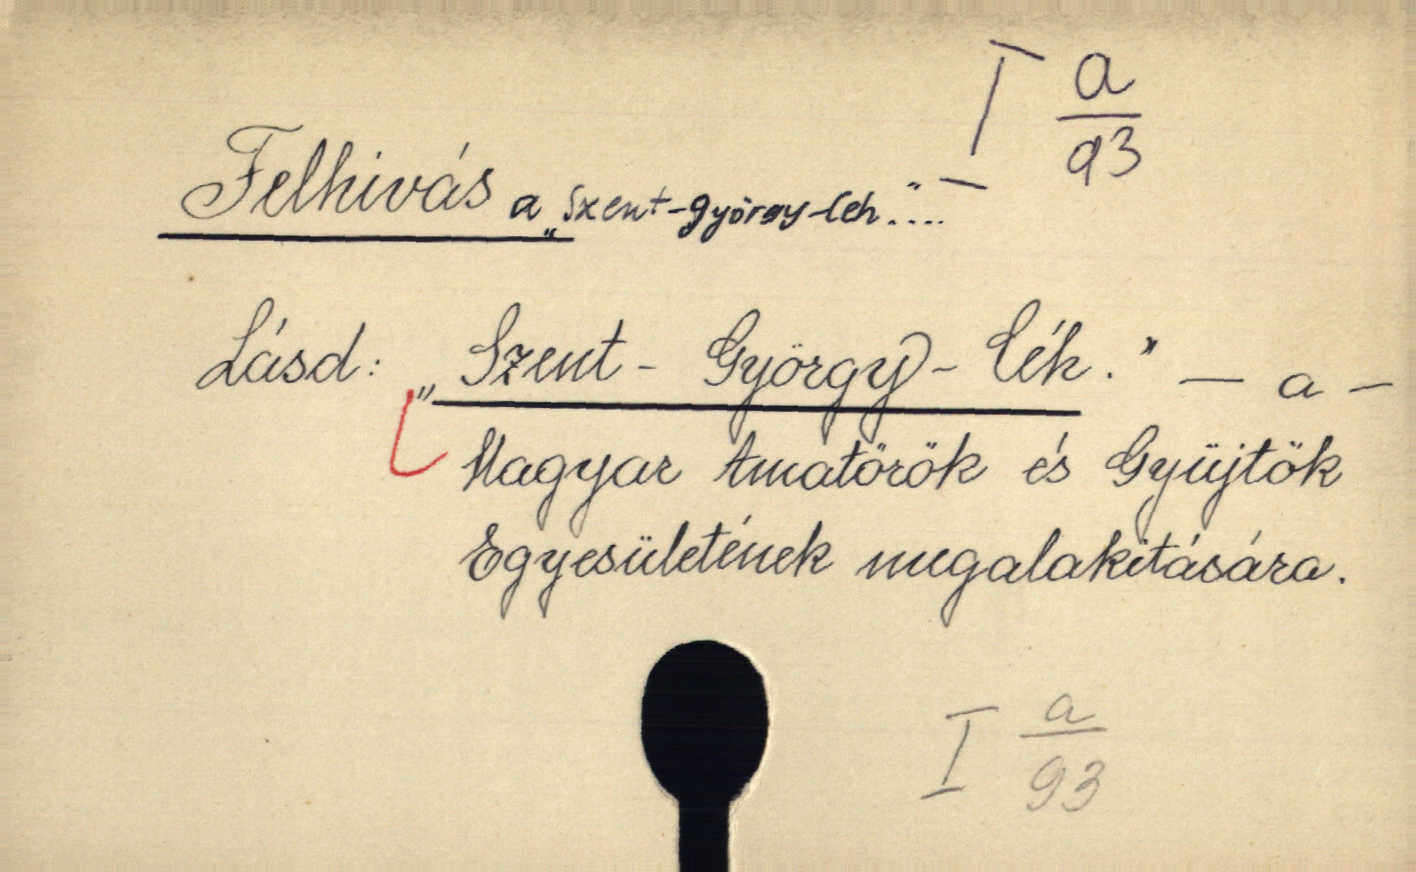 I a/93
Felhivás a „Szent-György-Céh....”
Lásd: „Szent-György-Céh.” — a —
Magyar Amatőrök és Gyüjtők
Egyesületének megalakitására.
I a/93